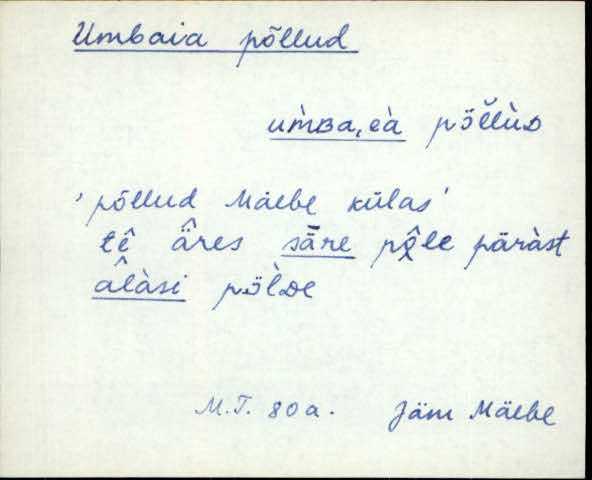 Umbaia põllud
um̀ʙa,eà põl̆lùᴅ
'põllud Mäebe külas'
tê ä̂res sāre põ̭le päràst
âlàsi põl̀ᴅe
M.T. 80a. Jäm Mäebe